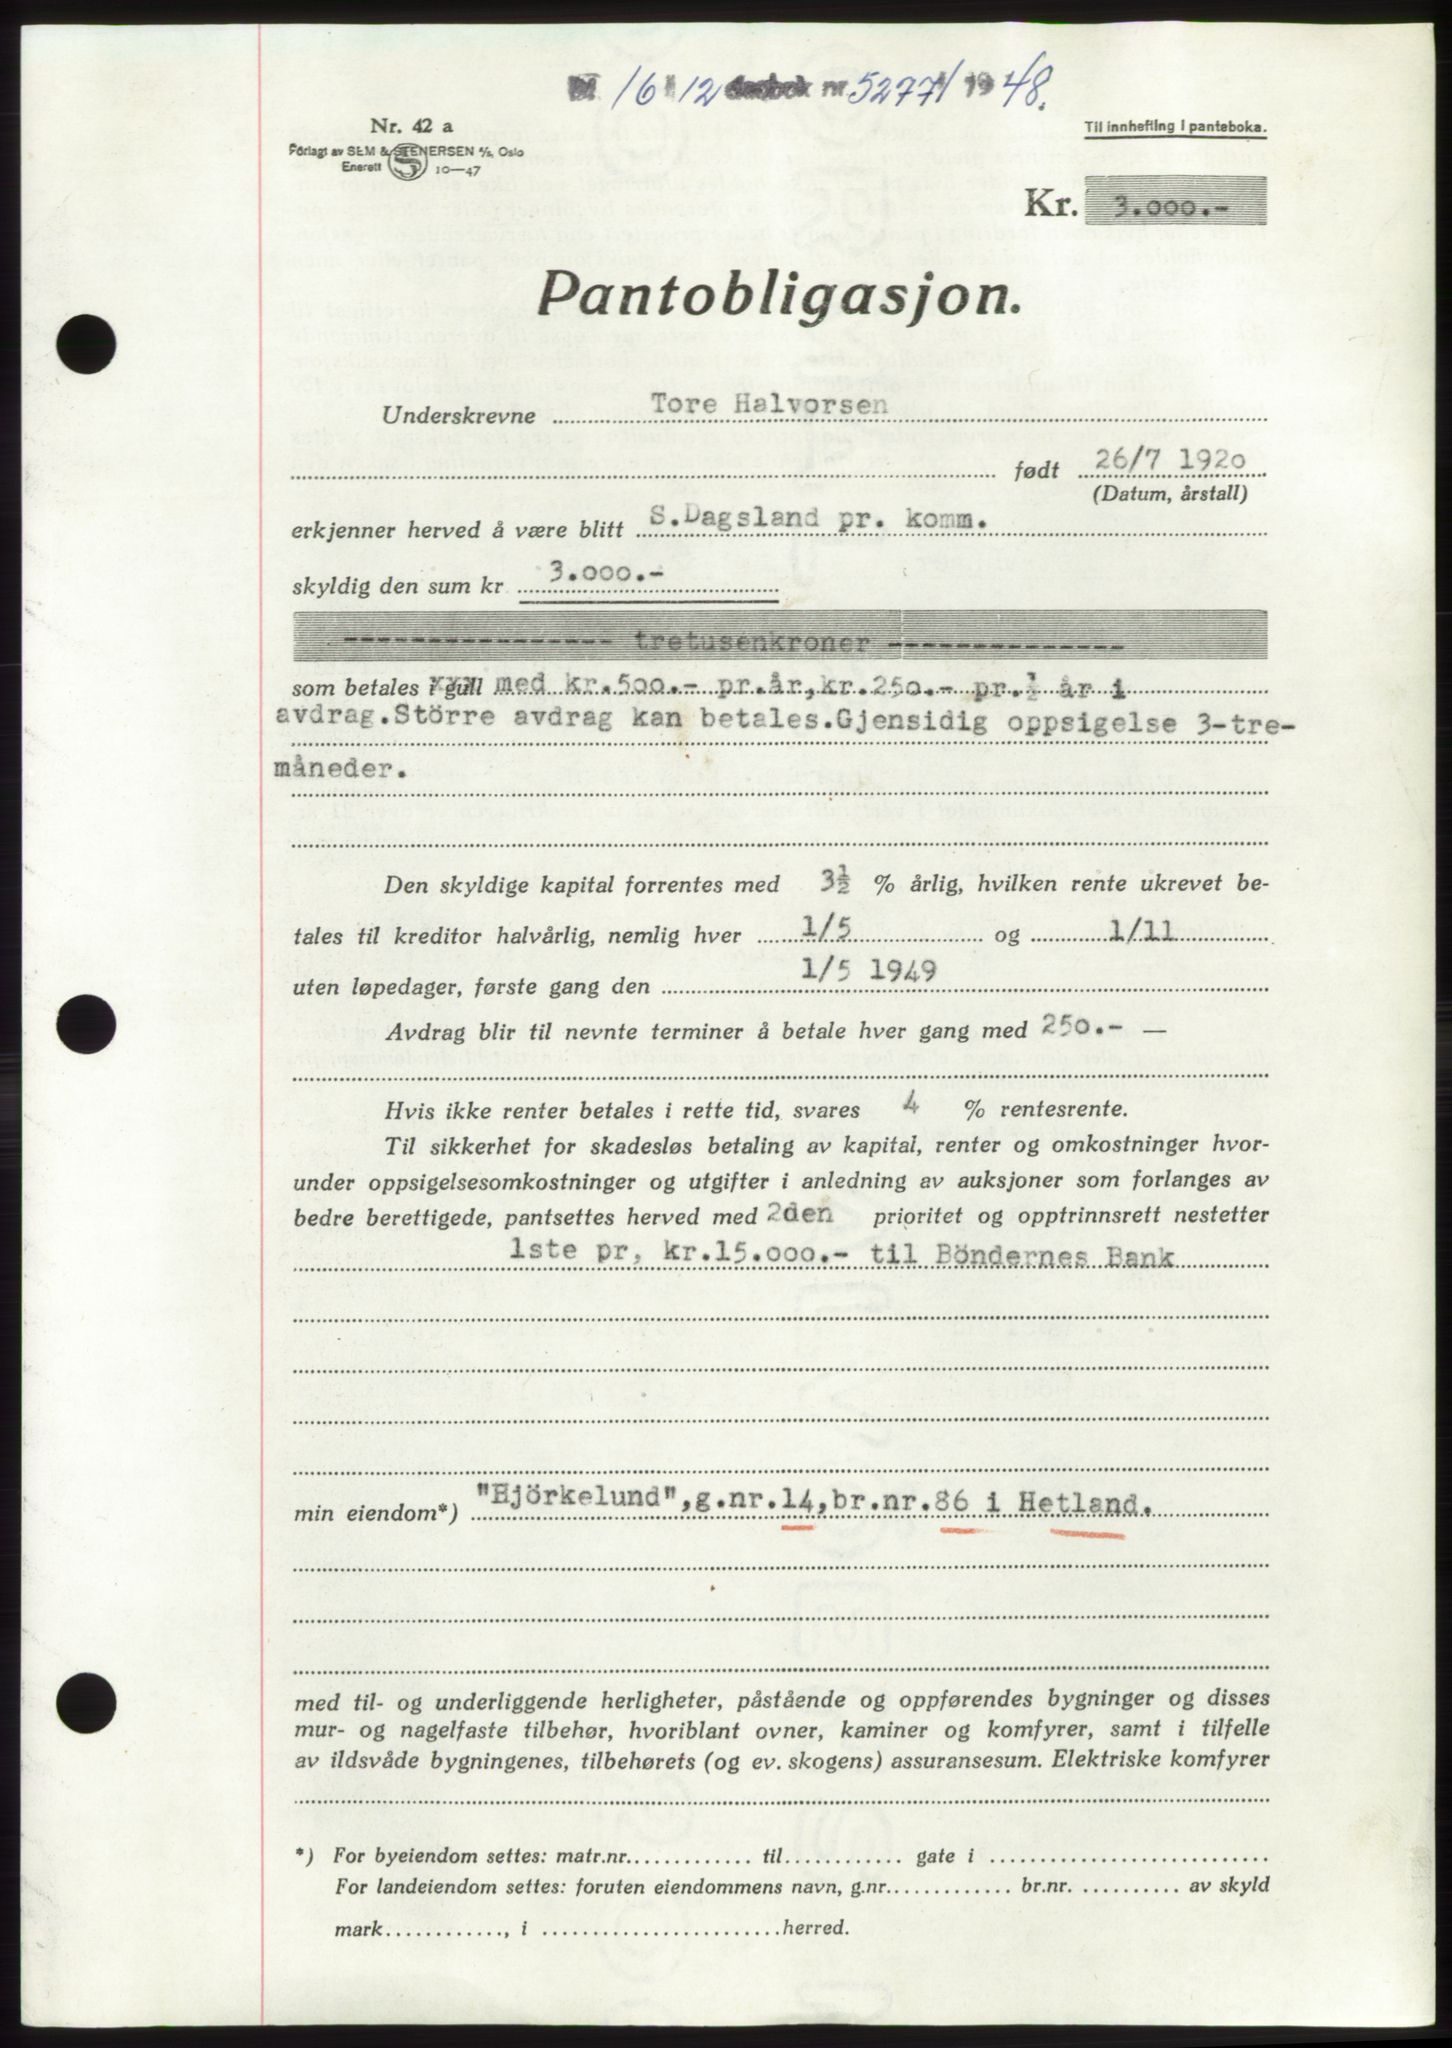 16/12 dagbok nr. 5277/1948.
Nr. 42 a
Forlagt av SEM & STENERSEN A/S, Oslo
Enerett S 10—47
Til innhefting i panteboka.
Kr. 3.000.-
Pantobligasjon.
Underskrevne Tore Halvorsen
født 26/7 1920
(Datum, årstall)
erkjenner herved å være blitt S.Dagsland pr. komm.
skyldig den sum kr 3.000.-
---------------- tretusenkroner --------------
som betales i gull med kr.500.- pr.år,kr.250.- pr.½ år i
avdrag.Större avdrag kan betales.Gjensidig oppsigelse 3-tre-
måneder.
Den skyldige kapital forrentes med 3½ % årlig, hvilken rente ukrevet be-
tales til kreditor halvårlig, nemlig hver 1/5 og 1/11
uten løpedager, første gang den 1/5 1949
Avdrag blir til nevnte terminer å betale hver gang med 250.- —
Hvis ikke renter betales i rette tid, svares 4 % rentesrente.
Til sikkerhet for skadesløs betaling av kapital, renter og omkostninger hvor-
under oppsigelsesomkostninger og utgifter i anledning av auksjoner som forlanges av
bedre berettigede, pantsettes herved med 2den prioritet og opptrinnsrett nestetter
1ste pr, kr.15.000.- til Böndernes Bank
min eiendom*) "Björkelund",g.nr.14,br.nr.86 i Hetland.
med til- og underliggende herligheter, påstående og oppførendes bygninger og disses
mur- og nagelfaste tilbehør, hvoriblant ovner, kaminer og komfyrer, samt i tilfelle
av ildsvåde bygningenes, tilbehørets (og ev. skogens) assuransesum. Elektriske komfyrer
*) For byeiendom settes: matr.nr. til gate i
For landeiendom settes: foruten eiendommens navn, g.nr. br.nr. av skyld
mark , i herred.